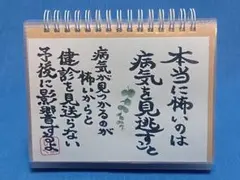 本当に怖いのは
病気を見逃すこと
病気が見つかるのが
怖いからと
健診を見送らない
予後に影響するよ